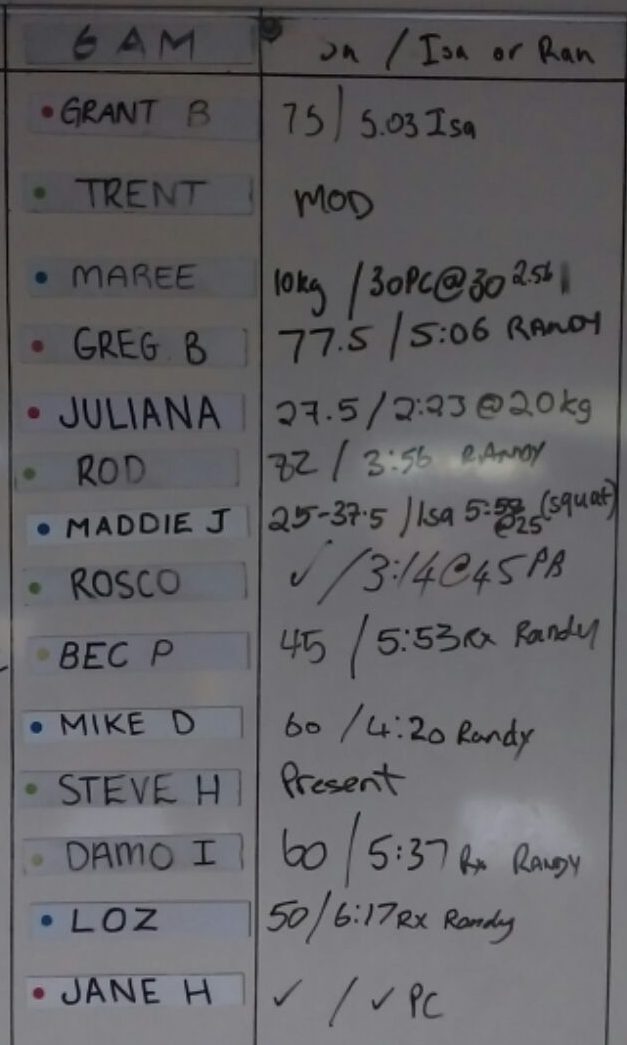 6 AM sn / Isa or Ran
GRANT B 75 / 5.03 Isa
TRENT MOD
MAREE 10kg / 30PC@30 2.56
GREG B 77.5 / 5:06 RANDY
JULIANA 27.5 / 2:23 @20kg
ROD 82 / 3:56 RANDY
MADDIE J 25-37.5 / Isa 5:59 (squat)
@25
ROSCO ✓ / 3:14@45 PB
BEC P 45 / 5:53 Rx Randy
MIKE D 60 / 4:20 Randy
STEVE H Present
DAMO I 60 / 5:37 Rx RANDY
LOZ 50/6:17 Rx Randy
JANE H ✓ / ✓ PC